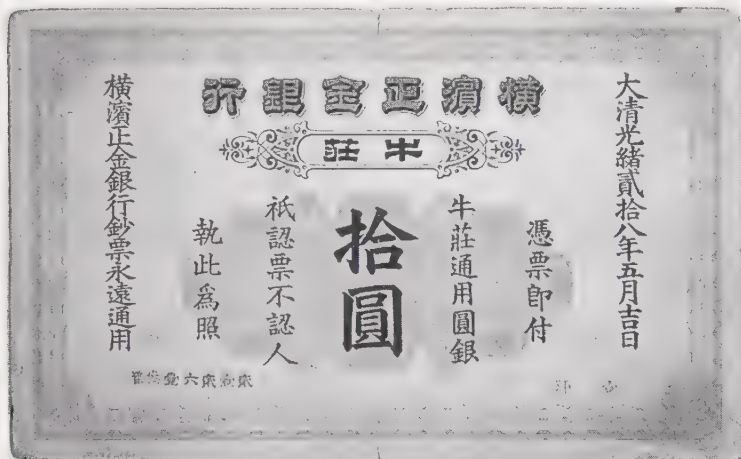 橫濱正金銀行
牛莊
大清光緒貳拾八年五月吉日
憑票卽付
牛莊通用圓銀
拾圓
祇認票不認人
執此爲照
橫濱正金銀行鈔票永遠通用